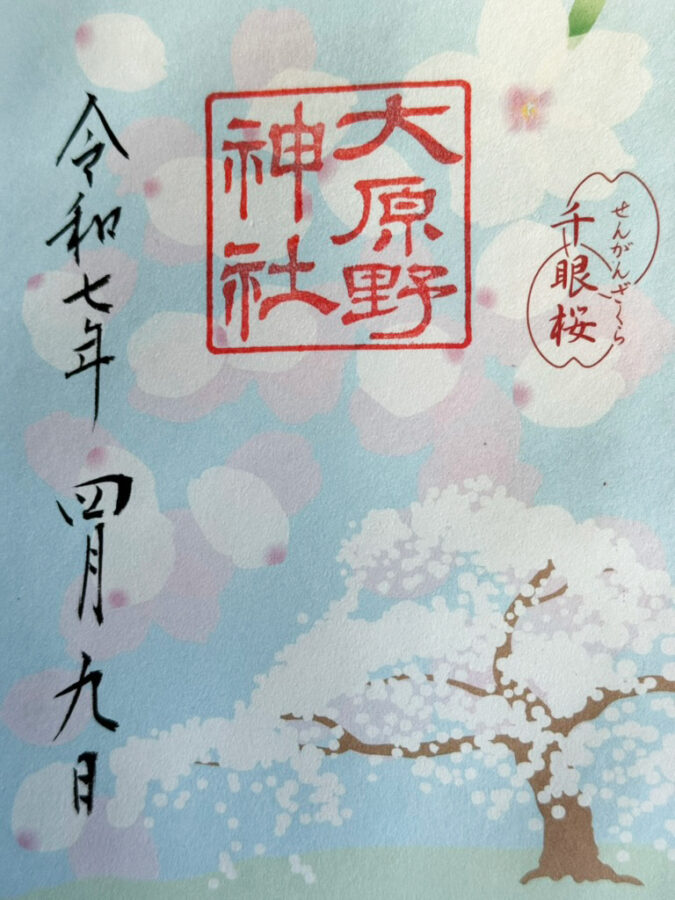 せんがんざくら
千眼桜
大原野
神社
令和七年 四月九日